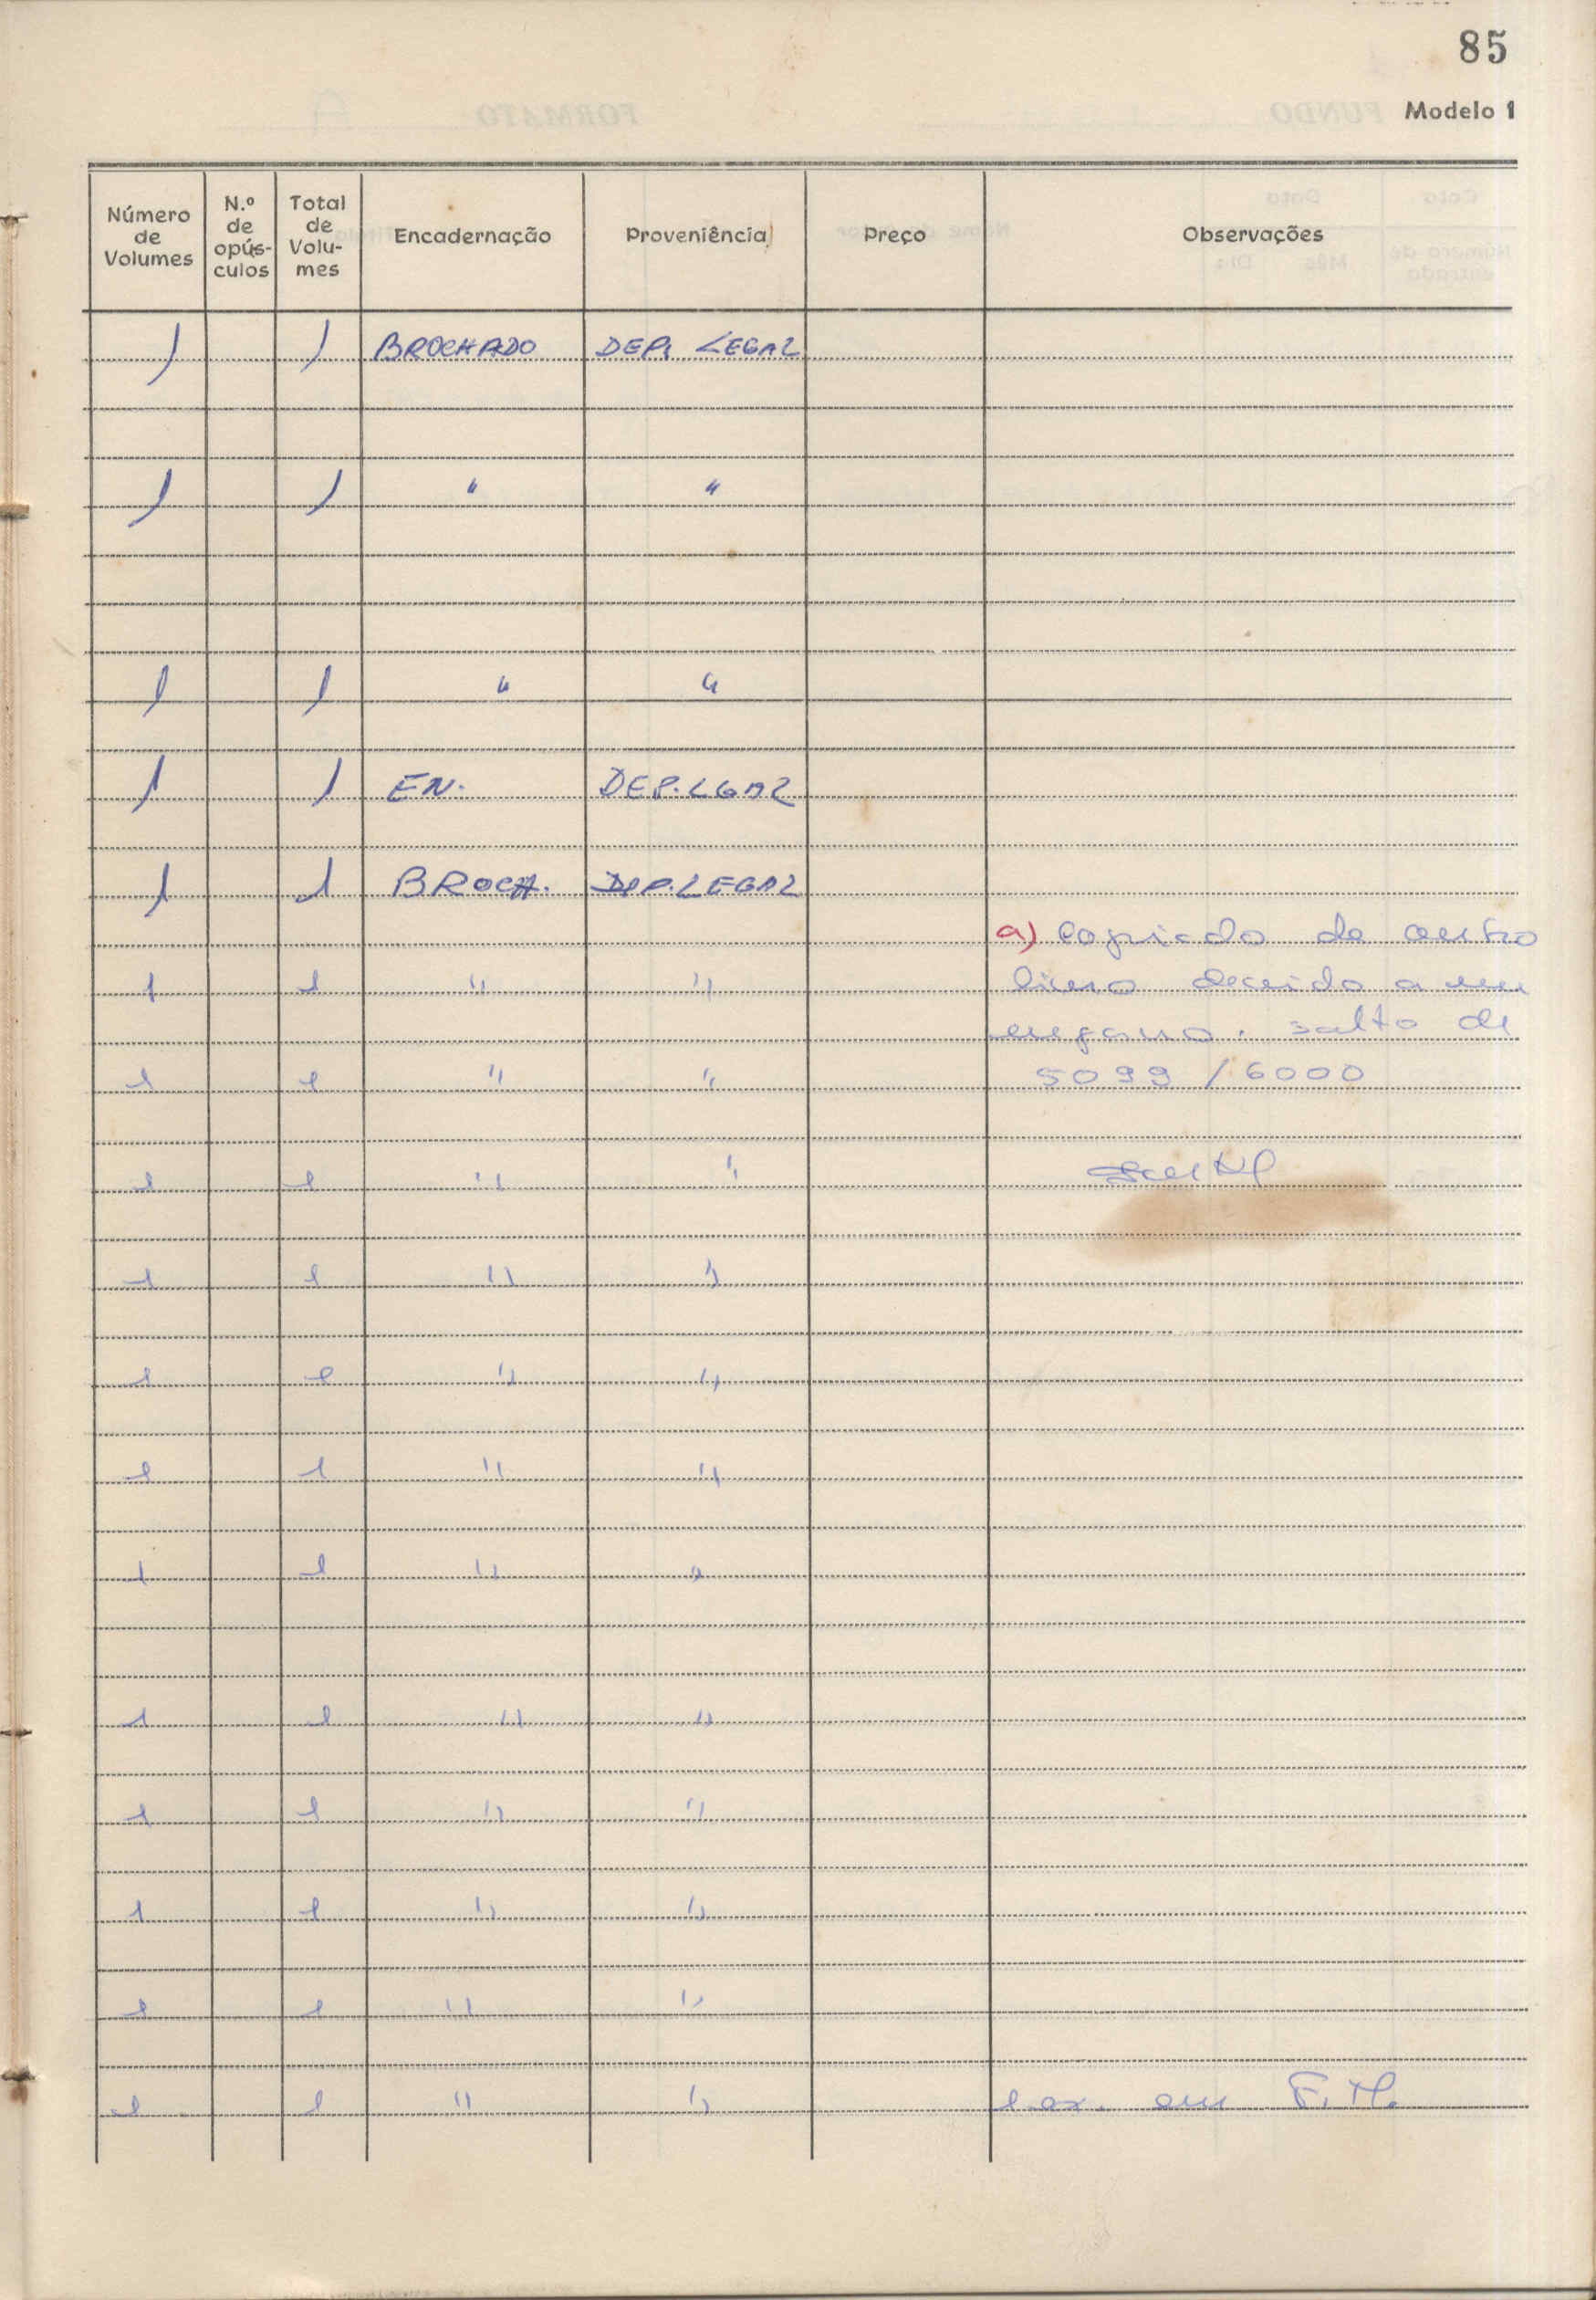 85
Modelo 1
Número de Volumes N.º de opús-culos Total de Volu-mes Encadernação Proveniência Preço Observações
1 1 BROCHADO DEP. LEGAL
1 1 " "
1 1 " "
1 1 EN. DEP. LGAL
1 1 BROCH. DEP. LEGAL
a) Copiado de outro
1 1 " " livro devido a um
engano. salto de
1 1 " " 5099 / 6000
1 1 " "
1 1 " "
1 1 " "
1 1 " "
1 1 " "
1 1 " "
1 1 " "
1 1 " "
1 1 " "
1 1 " " 1 ex. em F.M.